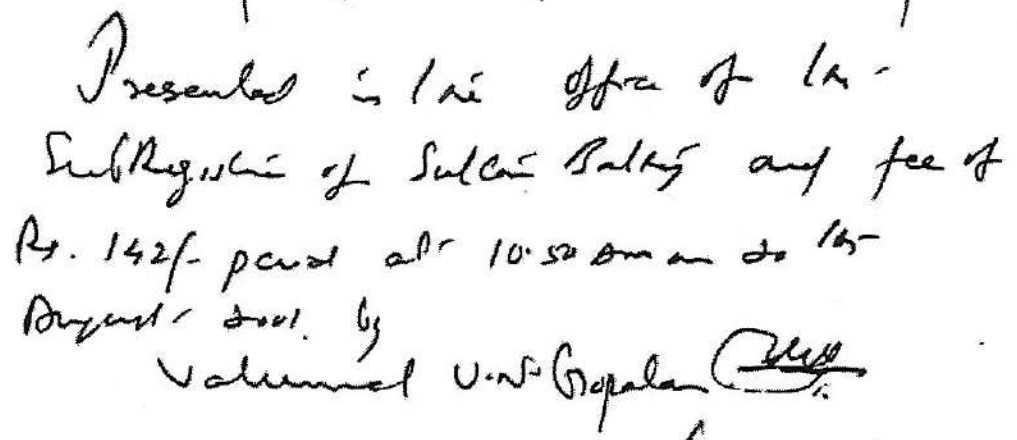 Presented in the office of the
SubRegistrar of Sultan Battery and fee of
Rs. 142/- paid at 10.50 am on 20th
August 2001 by
V.N. Gopalan